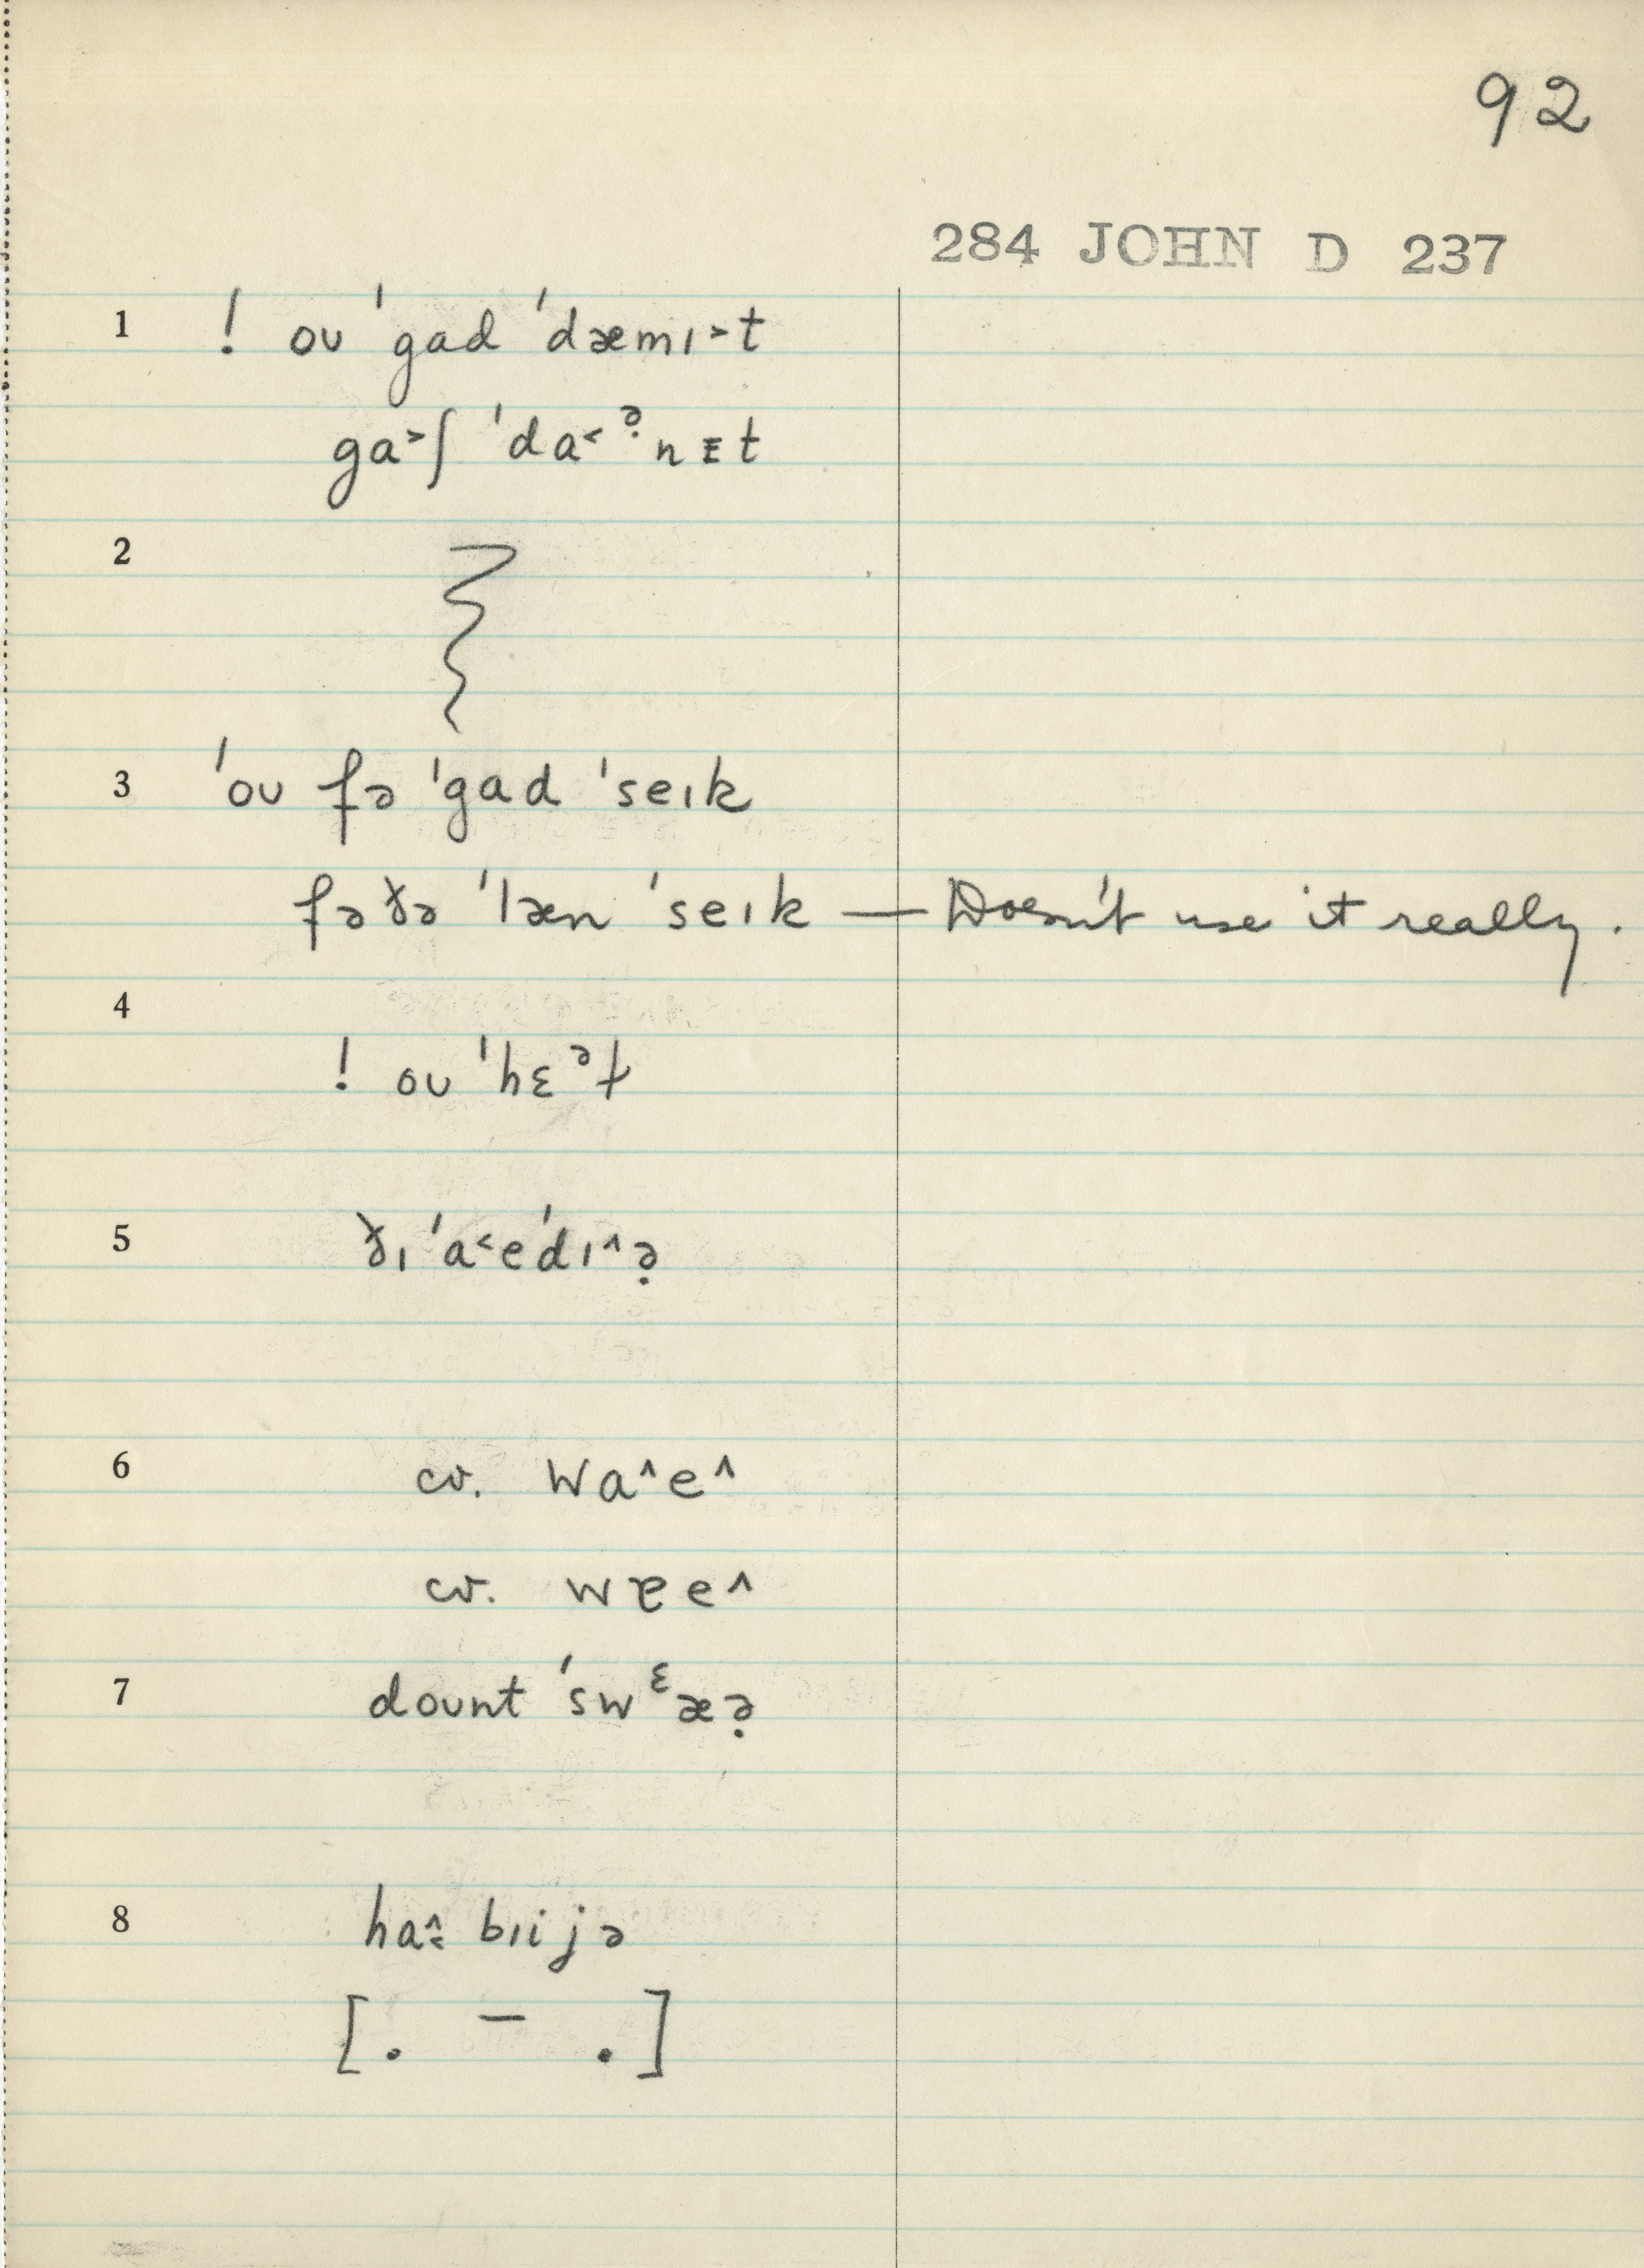 92
284 JOHN D 237
1 ! oʊ ˈgad ˈdæmɪ˃t
ga˃ʃ ˈda˂ᵊ̣nᴇt
2
3 ˈoʊ fə ˈgad ˈseɪk
fəðə ˈlæn ˈseɪk — Doesn't use it really.
4
! oʊ ˈhɛᵊɫ
5 ðɪ ˈa˂eˈdɪ˄ə̣
6 cv. wa˄e˄
cv. wɐe˄
7 dount ˈswᵋæə̣
8 ha˄˂ bɪijə
[. – .]